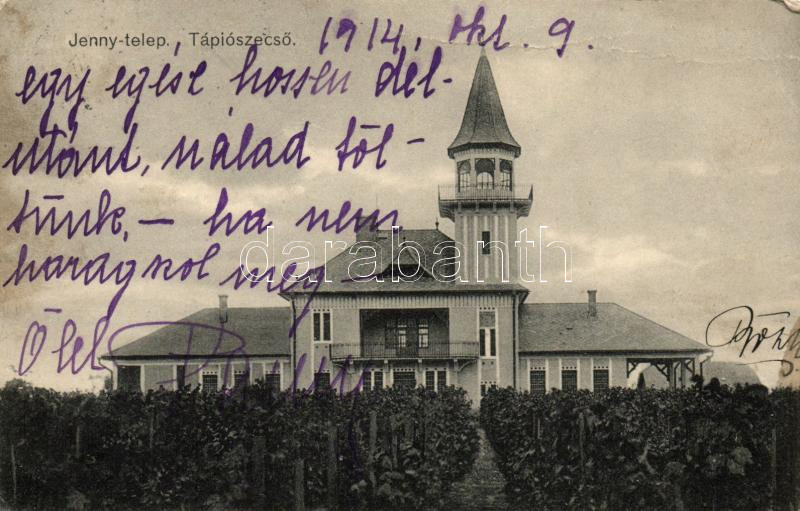 Jenny-telep. Tápiószecső.
1914, okt. 9.
egy egész hosszu dél-
utánt, nálad töl-
tünk, – ha nem
haragszol meg –
Ölel
darabanth